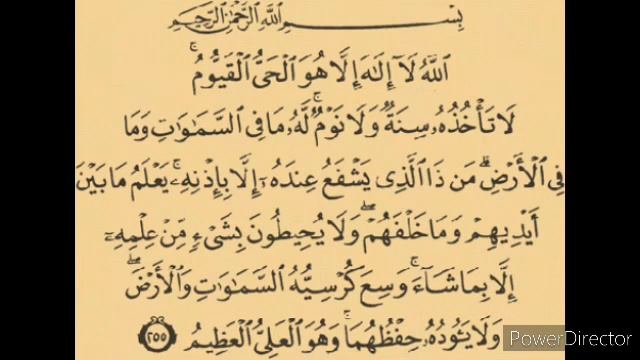 بِسْمِ اللَّهِ الرَّحْمَٰنِ الرَّحِيمِ
اللَّهُ لَآ إِلَٰهَ إِلَّا هُوَ الْحَىُّ الْقَيُّومُ ۚ
لَا تَأْخُذُهُۥ سِنَةٌ وَلَا نَوْمٌ ۚ لَّهُۥ مَا فِى السَّمَٰوَٰتِ وَمَا
فِى الْأَرْضِ ۗ مَن ذَا الَّذِى يَشْفَعُ عِندَهُۥٓ إِلَّا بِإِذْنِهِۦ ۚ يَعْلَمُ مَا بَيْنَ
أَيْدِيهِمْ وَمَا خَلْفَهُمْ ۖ وَلَا يُحِيطُونَ بِشَىْءٍ مِّنْ عِلْمِهِۦٓ
إِلَّا بِمَا شَآءَ ۚ وَسِعَ كُرْسِيُّهُ السَّمَٰوَٰتِ وَالْأَرْضَ ۖ
وَلَا يَـُٔودُهُۥ حِفْظُهُمَا ۚ وَهُوَ الْعَلِىُّ الْعَظِيمُ ٢٥٥
PowerDirector